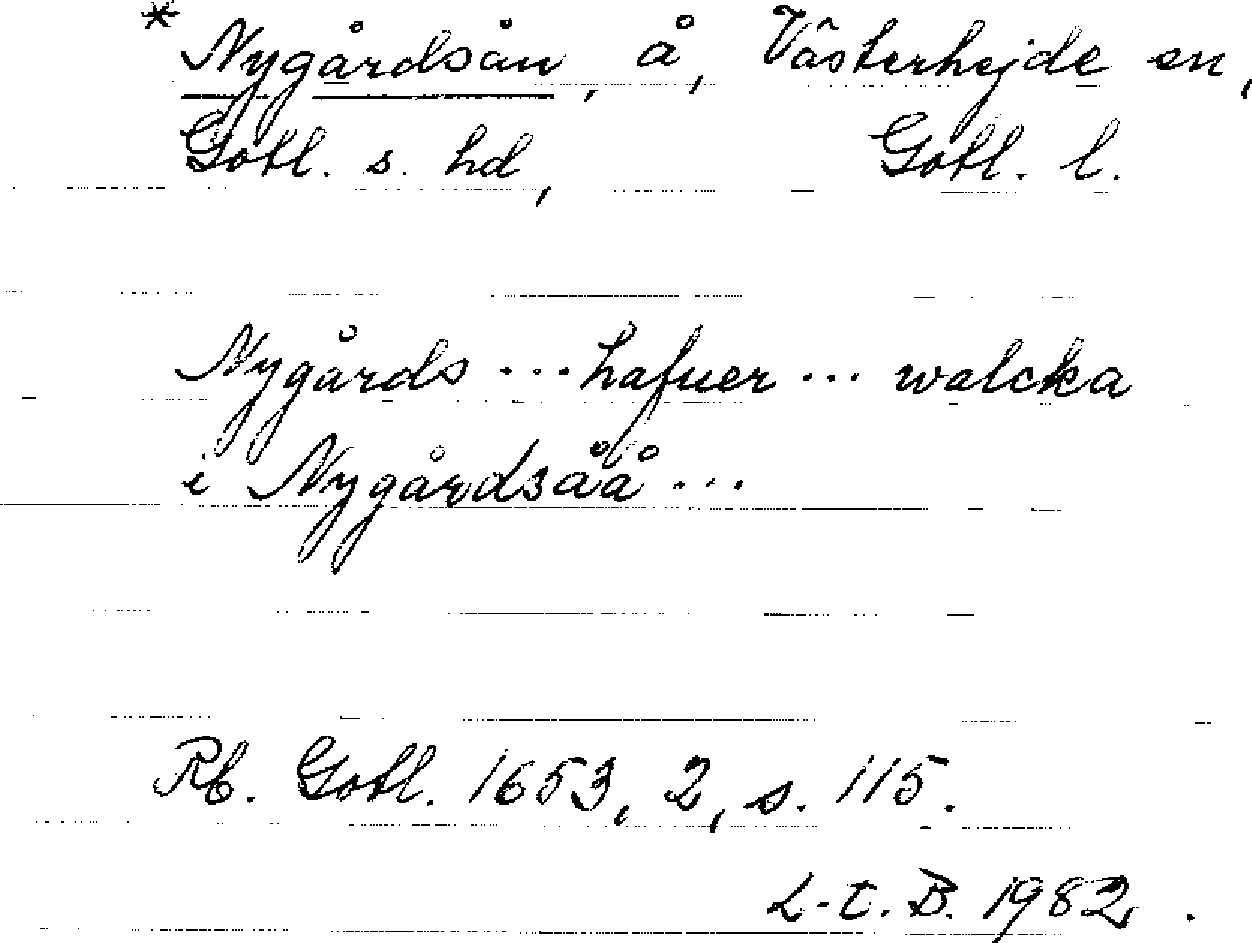 * Nygårdsån, å, Västerhejde sn,
Gotl. s. hd, Gotl. l.
Nygårds ... hafuer ... walcka
i Nygårdsåå ...
Rb. Gotl. 1653, 2, s. 115.
L-t. B. 1982.